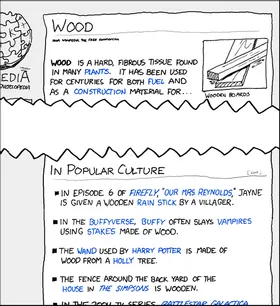 WOOD
FROM WIKIPEDIA, THE FREE ENCYCLOPEDIA
WOOD IS A HARD, FIBROUS TISSUE FOUND
IN MANY PLANTS. IT HAS BEEN USED
FOR CENTURIES FOR BOTH FUEL AND
AS A CONSTRUCTION MATERIAL FOR...
WOODEN BOARDS
PEDIA
ENCYCLOPEDIA
IN POPULAR CULTURE
■ IN EPISODE 6 OF FIREFLY, "OUR MRS REYNOLDS," JAYNE
IS GIVEN A WOODEN RAIN STICK BY A VILLAGER.
■ IN THE BUFFYVERSE, BUFFY OFTEN SLAYS VAMPIRES
USING STAKES MADE OF WOOD.
■ THE WAND USED BY HARRY POTTER IS MADE OF
WOOD FROM A HOLLY TREE.
■ THE FENCE AROUND THE BACK YARD OF THE
HOUSE IN THE SIMPSONS IS WOODEN.
■ IN THE 2004 TV SERIES BATTLESTAR GALACTICA